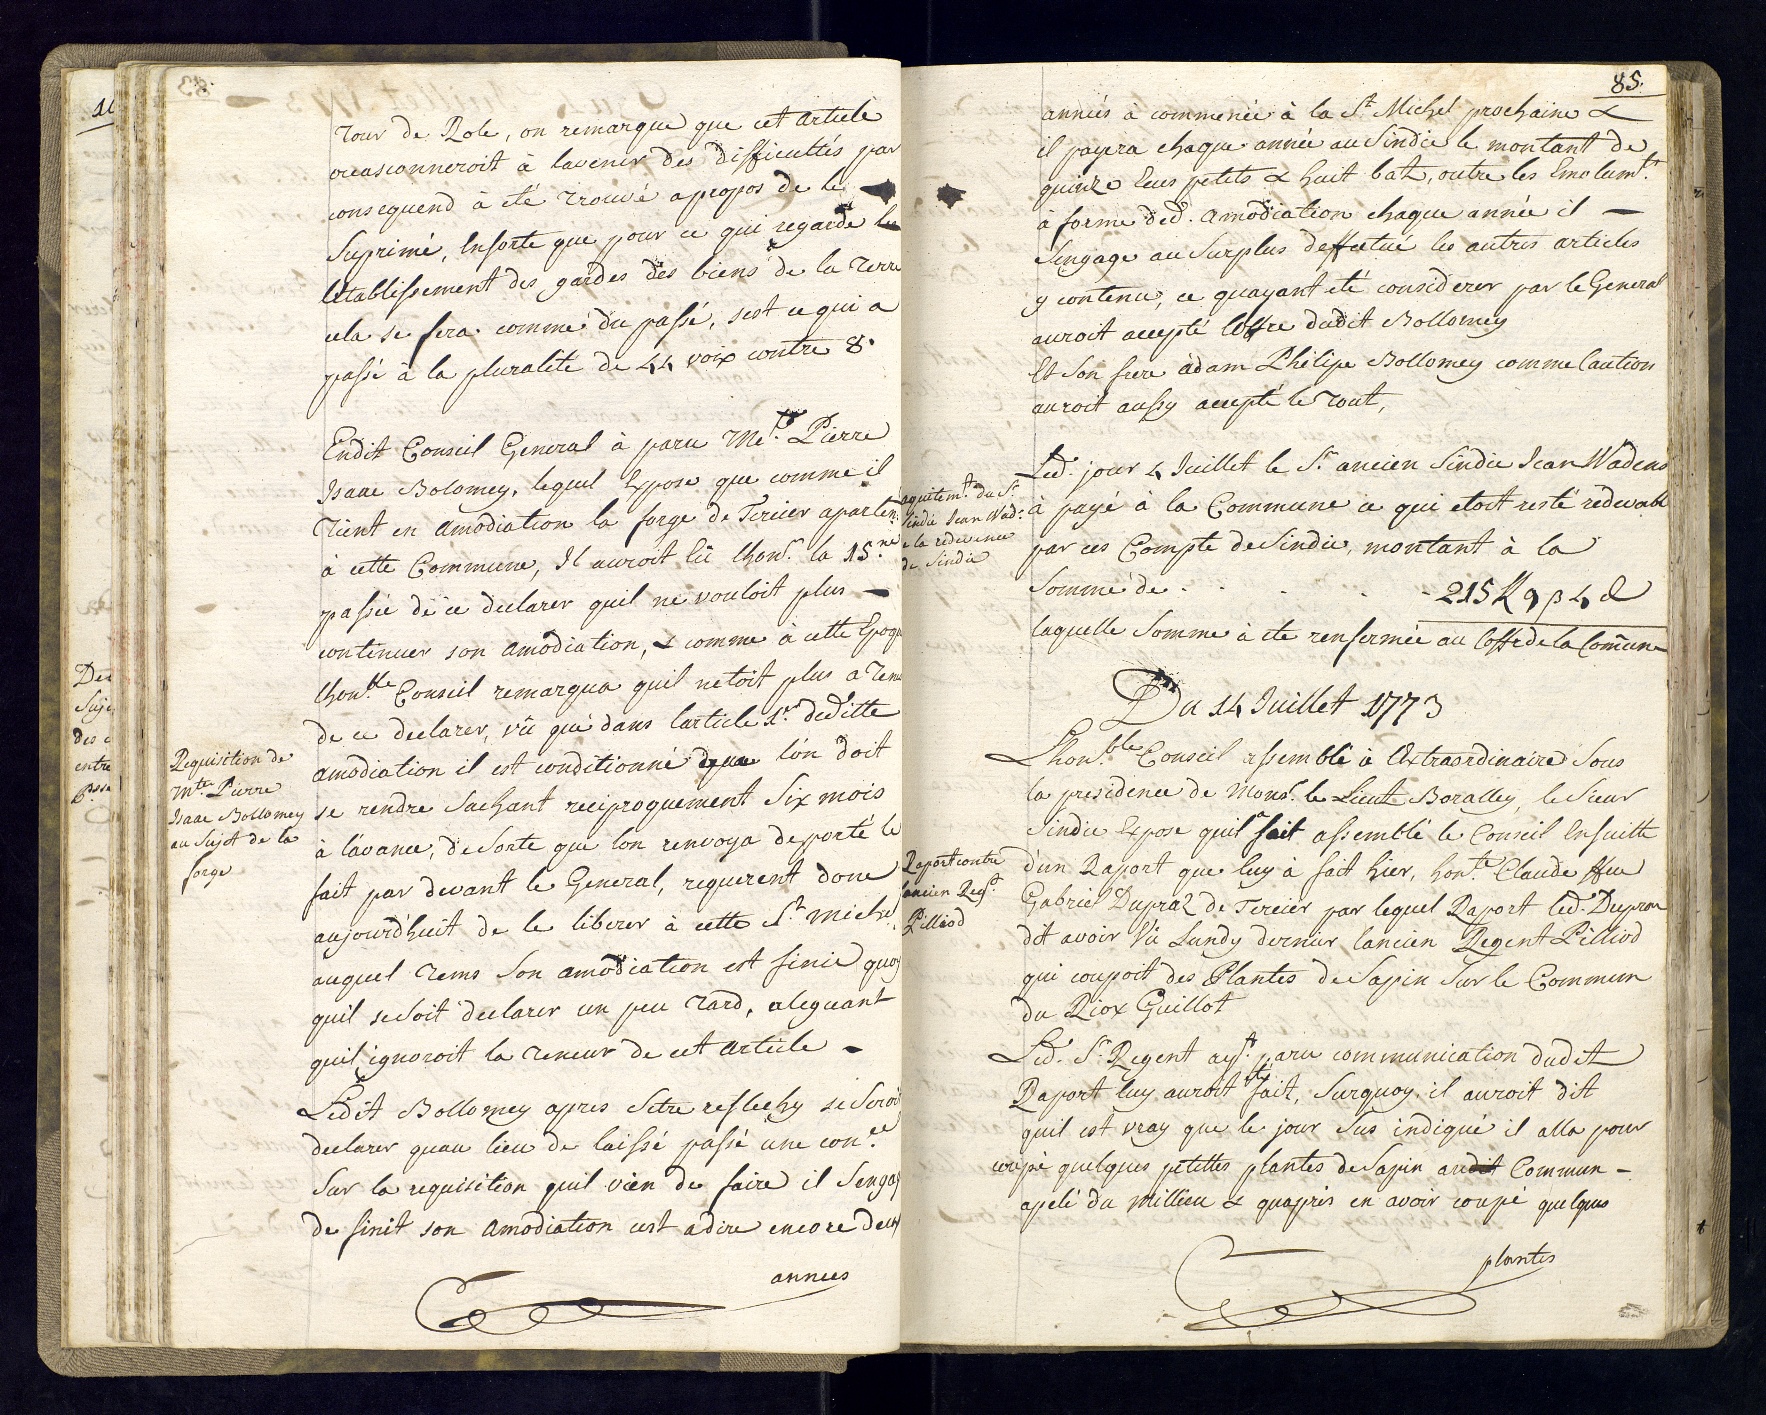 Tour de Role, on remarque que cet article
occasionneroit à lavenir des difficultés par
consequend à eté trouvé apropos de le
Suprimé, Ensorte que pour ce qui regarde
létablissement des gardes des biens de la Terre
cela se fera comme du passé, sest ce qui a
passé à la pluralité de 44 voix contre 8.
Endit Conseil General à paru Me. Pierre
Isaac Bolomey, lequel Expose que comme il
Tient en amodiation la forge de Tercier aparten
à cette Commune, Il auroit Eü lhonr. la 15.ne
passée de ce declarer quil ne vouloit plus
continuer son amodiation, & comme à cette Epoqu
lhonble. Conseil remarqua quil netoit plus a Tem
de ce declarer, vû que dans larticle 1r. deditte
amodiation il est conditionné que lón doit
se rendre Sachant reciproquement Six mois
à lávance, de Sorte que lon renvoya de porté le
fait par devant le General, requerent donc
aujourdhuit de le liberer à cette St. Michel
auquel Tems Son amodiation est finie quoy
quil se Soit declarer un peu Tard, aleguant
quil ignoroit la Teneur de cet article
Ledit Bollomey apres Setre reflechy se Seroit
declarer quau lieu de laissé passé une con.ce
Sur la requisition quil vien de faire il Sengag
de finit son amodiation cest adire encore deux
annees
Requisition de
Mte. Pierre
Isaac Bollomey
au Sujet de la
forge
85.
années à commencé à la St. Michel prochaine &
il payera chaque année au Sindic le montant de
quinze Ecus petits & huit batz, outre les Emolumts.
à forme ded. amodiation chaque année il
Sengage au Surplus deffectué les autres articles
y contenu, ce quayant été considerer par le General
auroit accepté loffre dudit Bollomey
Et Son frere adam Philipe Bollomey comme Caution
auroit aussy accepté le Tout,
Led. jour 4 Juillet le Sr. ancien Sindic Jean Wadens
à payé à la Commune ce qui etoit resté redevabl
par ces Compte de Sindic, montant à la
Somme de . . . . 215 ff 9 β 4 d
laquelle Somme à ete renfermée au Coffre de la Comune
aquitemt. du Sr.
Sindic Jean Wad:
e la redevence
de Sindic
Du 14 Juillet 1773
Lhon.ble Conseil assemblé à Extraordinaire Sous
la presidence de Monsr. le Lieut. Boralley, le Sieur
Sindic Expose quil a fait assemblé le Conseil Ensuitte
dún Raport que luy à fait hier, honte. Claude ffeu
Gabriel Dupraz de Tercier par lequel Raport led. Dupra
dit avoir Vû Lundy dernier lancien Regent Pilliod
qui coupoit des Plantes de Sapin Sur le Commun
du Riox Guillot
Raport contre
lancien Regt.
Pilliod
Led. Sr. Regent ayt. paru communication dudit
Raport luy auroit eté fait, Surquoy il auroit dit
quil est vray que le jour Sus indiqué il alla pour
coupé quelques petittes plantes de Sapin audit Commun
apelé du Millieu & quapris en avoir coupé quelques
plantes